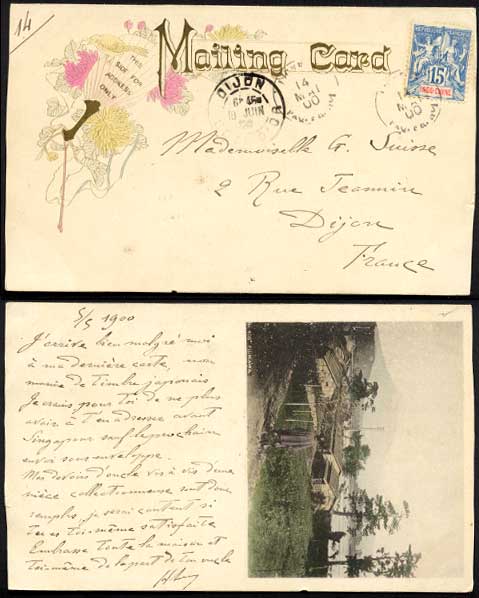 14
THIS
SIDE FOR
ADDRESS
ONLY
Mailing Card
RÉPUBLIQUE FRANÇAISE
15
INDO-CHINE
DIJON
JUIN
14
MAI
00
14
MAI
00
Mademoiselle G. Suisse
2 Rue Jeannin
Dijon
France
5/5 1900
J'arrive bien malgré moi
à ma dernière carte, non
munie de timbre japonais
Je crains pour toi de ne plus
avoir à t'en adresser avant
Singapour sauf le prochain
envoi sous enveloppe.
Mes devoirs d'oncle vis à vis d'une
nièce collectionneuse sont donc
remplis, je serai content si
tu es toi-même satisfaite
Embrasse toute la maison et
toi-même de la part de ton oncle